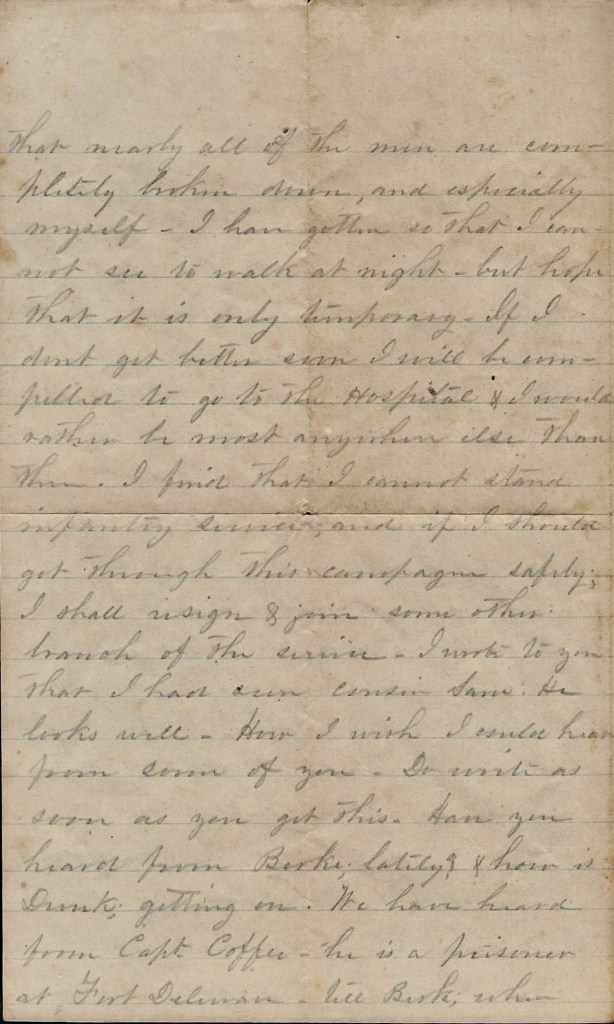 that nearly all of the men are com-
pletely broken down, and especially
myself - I have gotten so that I can-
not see to walk at night - but hope
that it is only temporary - If I
dont get better soon I will be com-
pelled to go to the Hospital & I would
rather be most anywhere else than
there. I find that I cannot stand
infantry service, and if I should
get through this campagne safely,
I shall resign & join some other
branch of the service - I wrote to you
that I had seen cousin Sam. He
looks well - How I wish I could hear
from some of you - Do write as
soon as you get this - Have you
heard from Berke, lately? & how is
getting on. We have heard
from Capt. Coffee - he is a prisoner
at Fort Delaware - tell Berk, when